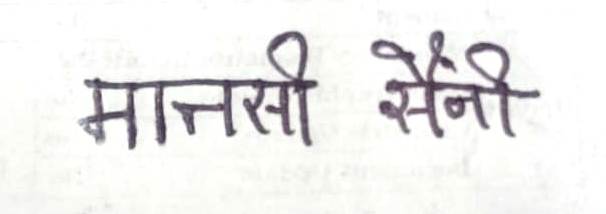 मानसी सैनी